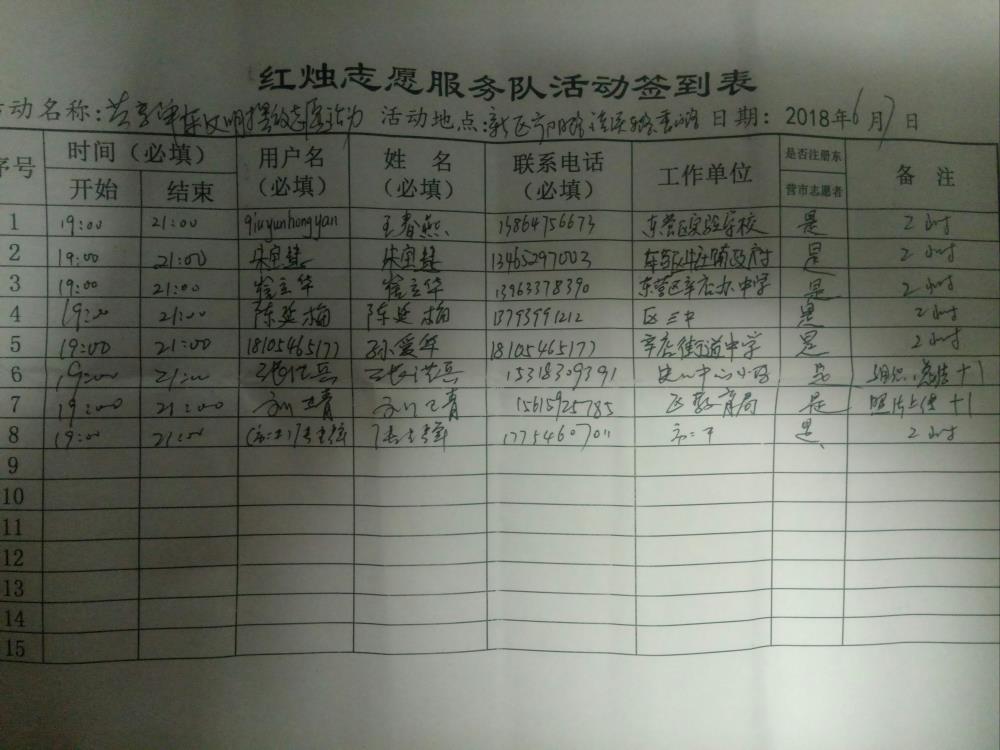 红烛志愿服务队活动签到表
动名称: 共享单车文明摆放志愿活动 活动地点: 新区 日期: 2018年6月7日
序号 时间（必填） 用户名（必填） 姓 名（必填） 联系电话（必填） 工作单位 是否注册东营市志愿者 备 注
开始 结束
1 19:00 21:00 qiuyunhongyan 王春燕 13864756673 东营区实验学校 是 2小时
2 19:00 21:00 13465297003 是 2小时
3 19:00 21:00 崔立华 崔立华 13963378390 东营区辛店办中学 是 2小时
4 19:00 21:00 陈延梅 陈延梅 13793991212 区三中 是 2小时
5 19:00 21:00 18105465177 孙爱华 18105465177 辛店街道中学 是 2小时
6 19:00 21:00 15318309391 是 组织、总结+1
7 19:00 21:00 15615925785 区教育局 是 照片上传+1
8 19:00 21:00 17754607011 是 2小时
9
10
11
12
13
14
15